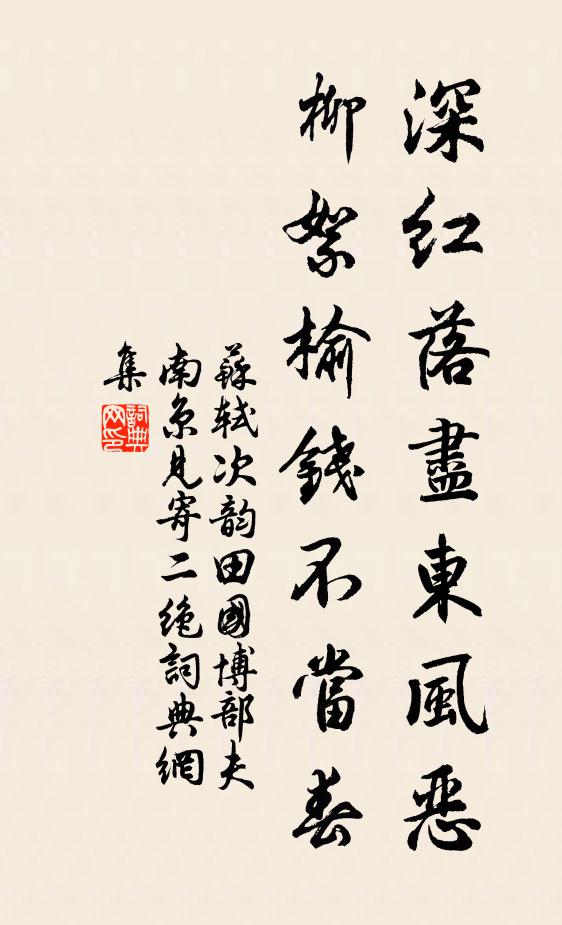 深紅落盡東風惡
柳絮榆錢不當春
蘇軾次韵田國博部夫
南京見寄二绝詞典網
集
詞典
网印